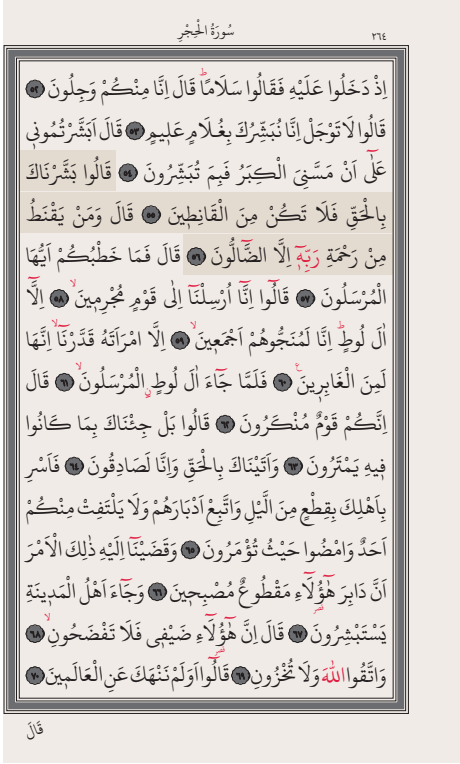 سُورَةُ الْحِجْرِ
٢٦٤
اِذْ دَخَلُوا عَلَيْهِ فَقَالُوا سَلَامًاۜ قَالَ اِنَّا مِنْكُمْ وَجِلُونَ ﴿٥٢﴾
قَالُوا لَا تَوْجَلْ اِنَّا نُبَشِّرُكَ بِغُلَامٍ عَلٖيمٍ ﴿٥٣﴾ قَالَ اَبَشَّرْتُمُونٖى
عَلٰٓى اَنْ مَسَّنِىَ الْكِبَرُ فَبِمَ تُبَشِّرُونَ ﴿٥٤﴾ قَالُوا بَشَّرْنَاكَ
بِالْحَقِّ فَلَا تَكُنْ مِنَ الْقَانِطٖينَ ﴿٥٥﴾ قَالَ وَمَنْ يَقْنَطُ
مِنْ رَحْمَةِ رَبِّهٖٓ اِلَّا الضَّٓالُّونَ ﴿٥٦﴾ قَالَ فَمَا خَطْبُكُمْ اَيُّهَا
الْمُرْسَلُونَ ﴿٥٧﴾ قَالُٓوا اِنَّٓا اُرْسِلْنَٓا اِلٰى قَوْمٍ مُجْرِمٖينَۙ ﴿٥٨﴾ اِلَّٓا
اٰلَ لُوطٍۜ اِنَّا لَمُنَجُّوهُمْ اَجْمَعٖينَۙ ﴿٥٩﴾ اِلَّا امْرَاَتَهُ قَدَّرْنَٓاۙ اِنَّهَا
لَمِنَ الْغَابِرٖينَ۟ ﴿٦٠﴾ فَلَمَّا جَٓاءَ اٰلَ لُوطٍۨ الْمُرْسَلُونَۙ ﴿٦١﴾ قَالَ
اِنَّكُمْ قَوْمٌ مُنْكَرُونَ ﴿٦٢﴾ قَالُوا بَلْ جِئْنَاكَ بِمَا كَانُوا
فٖيهِ يَمْتَرُونَ ﴿٦٣﴾ وَاَتَيْنَاكَ بِالْحَقِّ وَاِنَّا لَصَادِقُونَ ﴿٦٤﴾ فَاَسْرِ
بِاَهْلِكَ بِقِطْعٍ مِنَ الَّيْلِ وَاتَّبِعْ اَدْبَارَهُمْ وَلَا يَلْتَفِتْ مِنْكُمْ
اَحَدٌ وَامْضُوا حَيْثُ تُؤْمَرُونَ ﴿٦٥﴾ وَقَضَيْنَٓا اِلَيْهِ ذٰلِكَ الْاَمْرَ
اَنَّ دَابِرَ هٰٓؤُ۬لَٓاءِ مَقْطُوعٌ مُصْبِحٖينَ ﴿٦٦﴾ وَجَٓاءَ اَهْلُ الْمَدٖينَةِ
يَسْتَبْشِرُونَ ﴿٦٧﴾ قَالَ اِنَّ هٰٓؤُ۬لَٓاءِ ضَيْفٖى فَلَا تَفْضَحُونِۙ ﴿٦٨﴾
وَاتَّقُوا اللّٰهَ وَلَا تُخْزُونِ ﴿٦٩﴾ قَالُٓوا اَوَلَمْ نَنْهَكَ عَنِ الْعَالَمٖينَ ﴿٧٠﴾
قَالَ